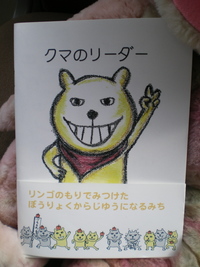 クマのリーダー
リンゴのもりでみつけた
ぼうりょくからじゆうになるみち